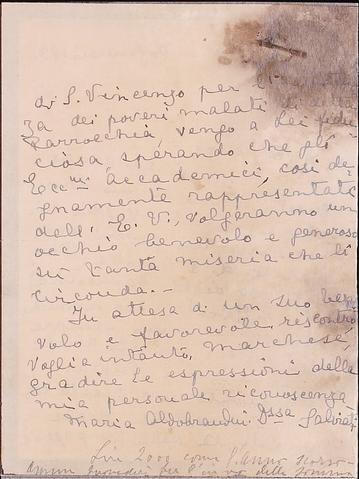 di S. Vincenzo per
za dei poveri malati di
Parrocchia vengo a Lei fidu
ciosa, sperando che gli
Ecc.mi accademici, così de
gnamente rappresentati
dall' E. V. volgeranno un
occhio benevolo e generoso
su tanta miseria che li
circonda. -
In attesa di un suo bene
volo e favorevole riscontro
voglia intanto, Marchese,
gradire le espressioni della
mia personale riconoscenza
Maria Aldobrandini D.ssa Salviati
Lire 2000 come l'anno scorso -
per l'invio della somma